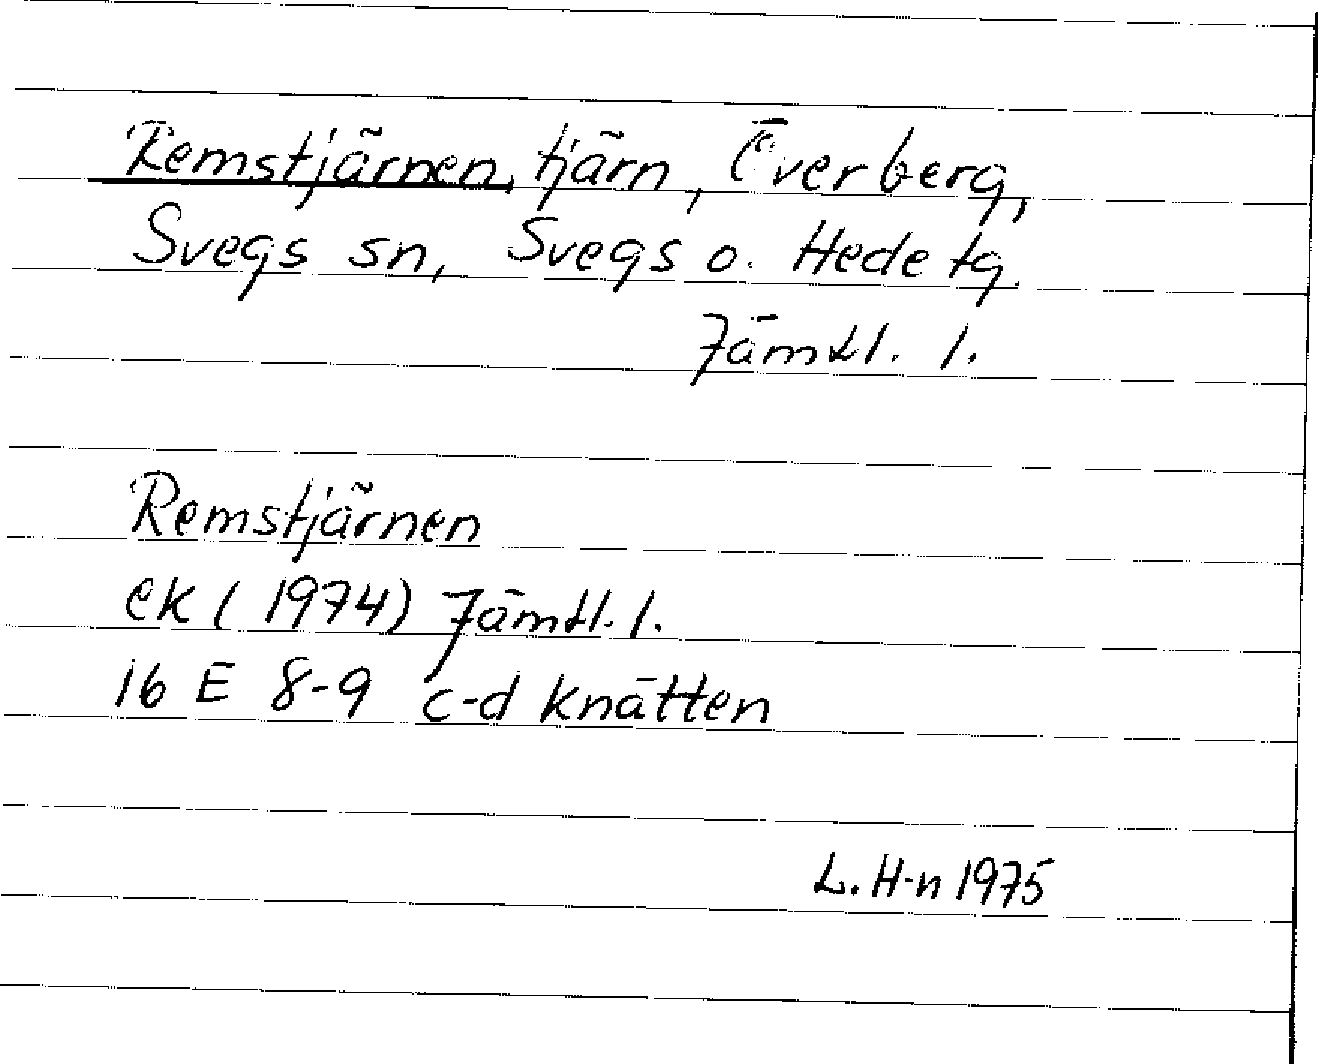 Remstjärnen, tjärn, Överberg,
Svegs sn, Svegs o. Hede tg.
Jämtl. l.
Remstjärnen
ek (1974) Jämtl. l.
16 E 8-9 c-d Knätten
L. H-n 1975